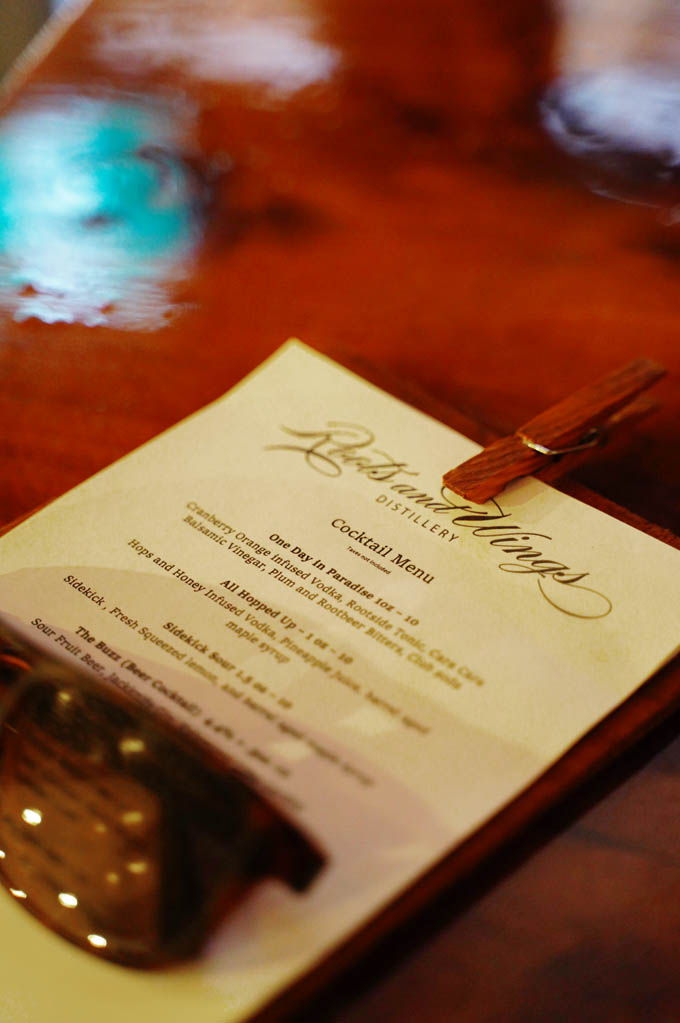 Roots and Wings
DISTILLERY
Cocktail Menu
Taxes not included
One Day in Paradise 1oz - 10
Cranberry Orange Infused Vodka, Rootside Tonic, Cara Cara
Balsamic Vinegar, Plum and Rootbeer Bitters, Club soda
All Hopped Up - 1 oz - 10
Hops and Honey Infused Vodka, Pineapple Juice, barrel aged
maple syrup
Sidekick Sour 1.5 oz - 10
Sidekick , Fresh Squeezed lemon, and barrel aged maple syrup
The Buzz (Beer Cocktail)
Sour Fruit Beer,